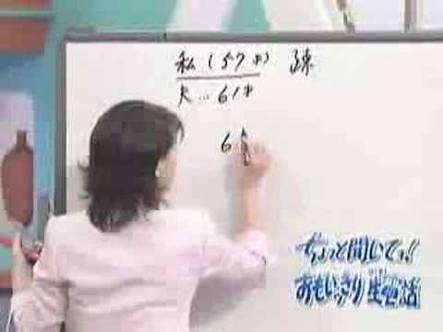 私(57才)
夫…61才
6
ちょっと聞いてョ!
おもいッきり生電話